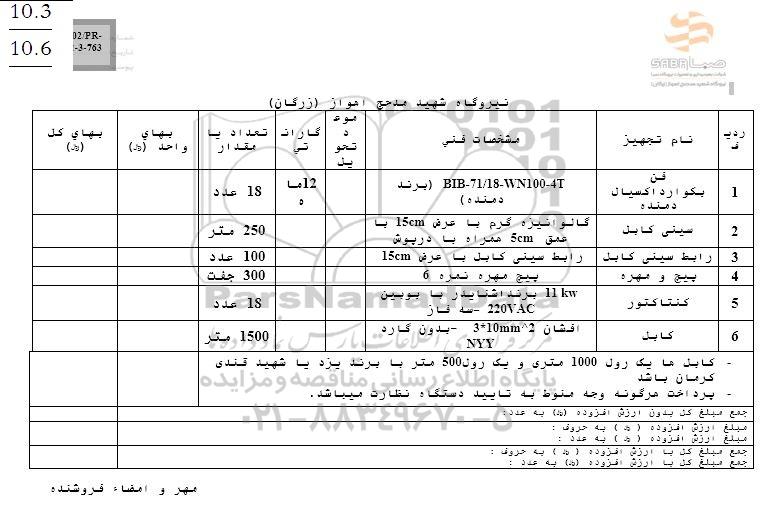 10.3
10.6
02/PR-
-3-763
صبا SABA
نیروگاه شهید مدحج اهواز (زرگان)
ردیف | نام تجهیز | مشخصات فنی | موعد تحویل | گارانتی | تعداد یا مقدار | بهای واحد (﷼) | بهای کل (﷼)
1 | فن بکوارداکسیال دمنده | BIB-71/18-WN100-4T (برند دمنده) | 12ماه | 18 عدد
2 | سینی کابل | گالوانیزه گرم با عرض 15cm با عمق 5cm همراه با درپوش | 250 متر
3 | رابط سینی کابل | رابط سینی کابل با عرض 15cm | 100 عدد
4 | پیچ و مهره | پیچ مهره نمره 6 | 300 جفت
5 | کنتاکتور | 11 kw برنداشنایدر با بوبین 220VAC -سه فاز | 18 عدد
6 | کابل | افشان 3*10mm^2 -بدون گارد NYY | 1500 متر
- کابل ها یک رول 1000 متری و یک رول500 متر با برند یزد یا شهید قندی
کرمان باشد
- پرداخت هرگونه وجه منوط به تایید دستگاه نظارت میباشد.
جمع مبلغ کل بدون ارزش افزوده (﷼) به عدد:
مبلغ ارزش افزوده ( ﷼ ) به حروف :
مبلغ ارزش افزوده ( ﷼ ) به عدد :
جمع مبلغ کل با ارزش افزوده ( ﷼ ) به حروف :
جمع مبلغ کل با ارزش افزوده (﷼) به عدد :
مهر و امضاء فروشنده
ParsNamadData
پایگاه اطلاع رسانی مناقصه و مزایده
۰۲۱-۸۸۳۴۹۶۷۰-۵